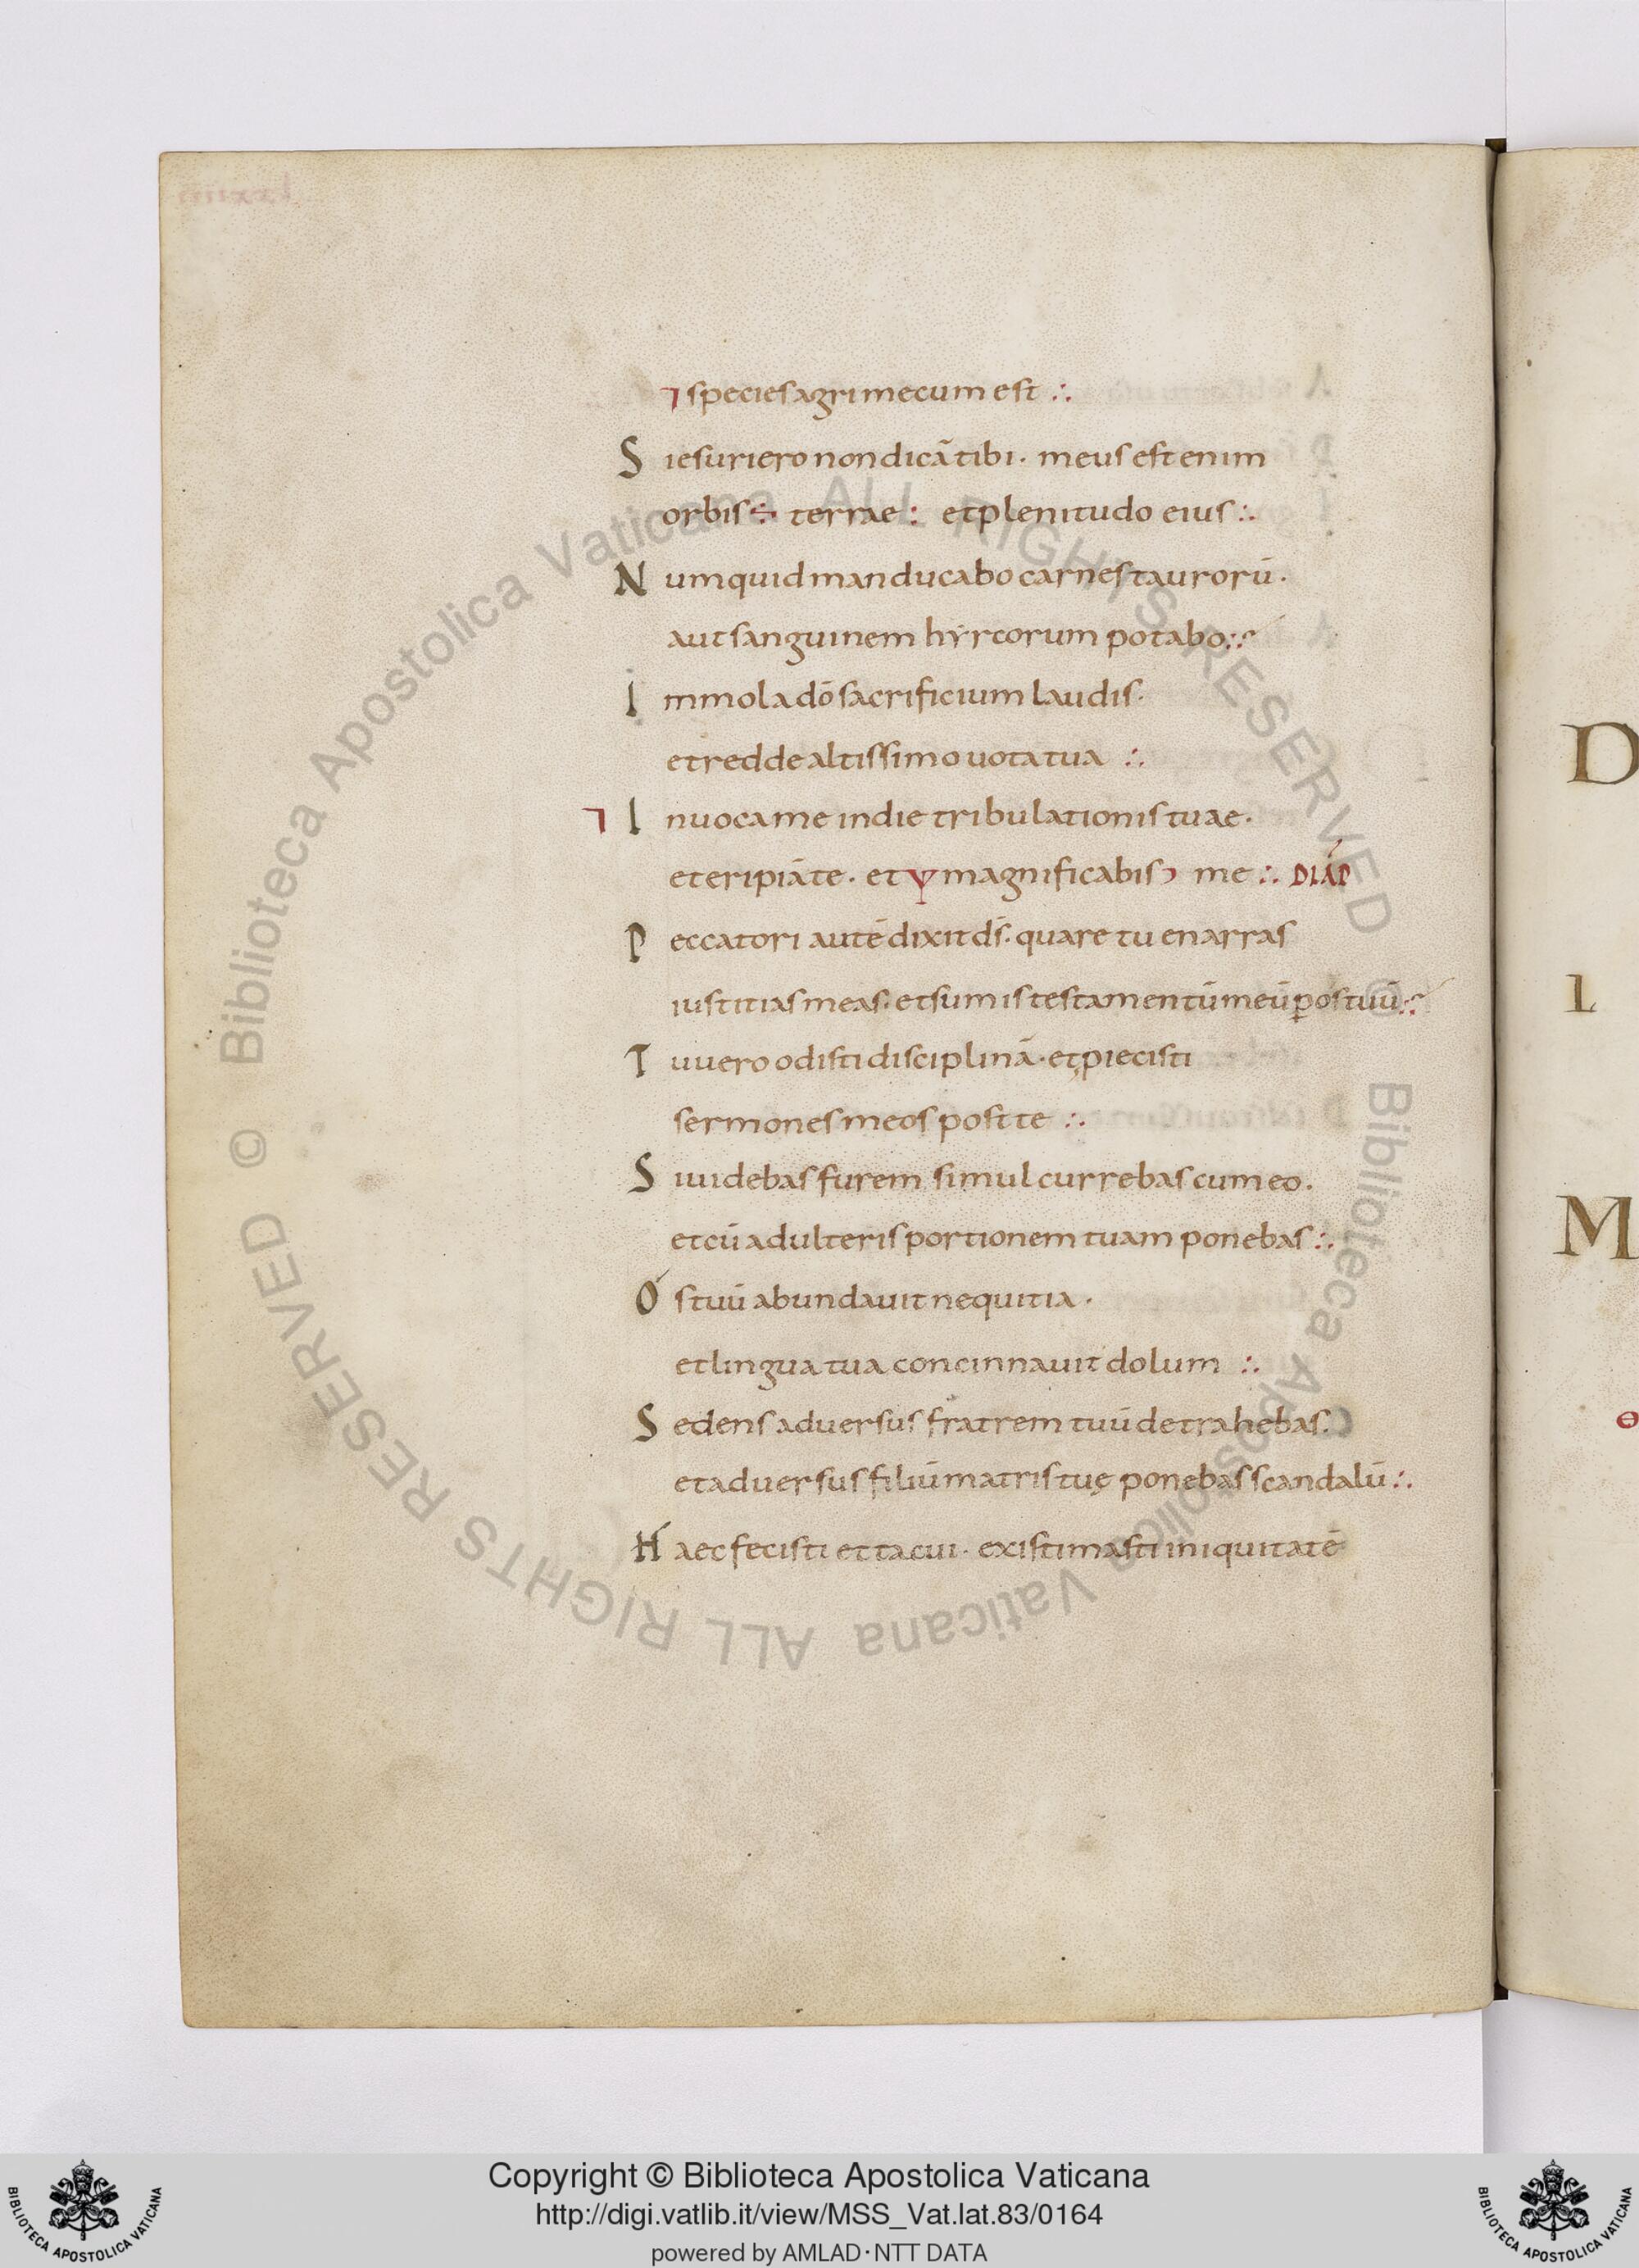 ⁊ species agri mecum est ∴
S i esuriero non dicā tibi · meus est enim
orbis ÷ terrae : et plenitudo eius ∴
N umquid manducabo carnes taurorū ·
aut sanguinem hyrcorum potabo ∴
I mmola dō sacrificium laudis ·
et redde altissimo uota tua ∴
⁊ I nuoca me in die tribulationis tuae ·
et eripiā te · et ψ magnificabis me ∴ DIAP
P eccatori autē dixit ds̄ · quare tu enarras
iustitias meas · et sumis testamentū meū ꝑ os tuū ∴
T u uero odisti disciplinā · et ꝓiecisti
sermones meos post te ∴
S i uidebas furem simul currebas cum eo ·
et cū adulteris portionem tuam ponebas ∴
O s tuū abundauit nequitia ·
et lingua tua concinnauit dolum ∴
S edens aduersus fratrem tuū detrahebas ·
et aduersus filiū matris tuę ponebas scandalū ∴
H aec fecisti et tacui · existimasti iniquitatē
D
L
M
Θ
© Biblioteca Apostolica Vaticana ALL RIGHTS RESERVED © Biblioteca Apostolica Vaticana ALL RIGHTS RESERVED
Copyright © Biblioteca Apostolica Vaticana
http://digi.vatlib.it/view/MSS_Vat.lat.83/0164
powered by AMLAD·NTT DATA
BIBLIOTECA APOSTOLICA VATICANA
BIBLIOTECA APOSTOLICA VATICANA